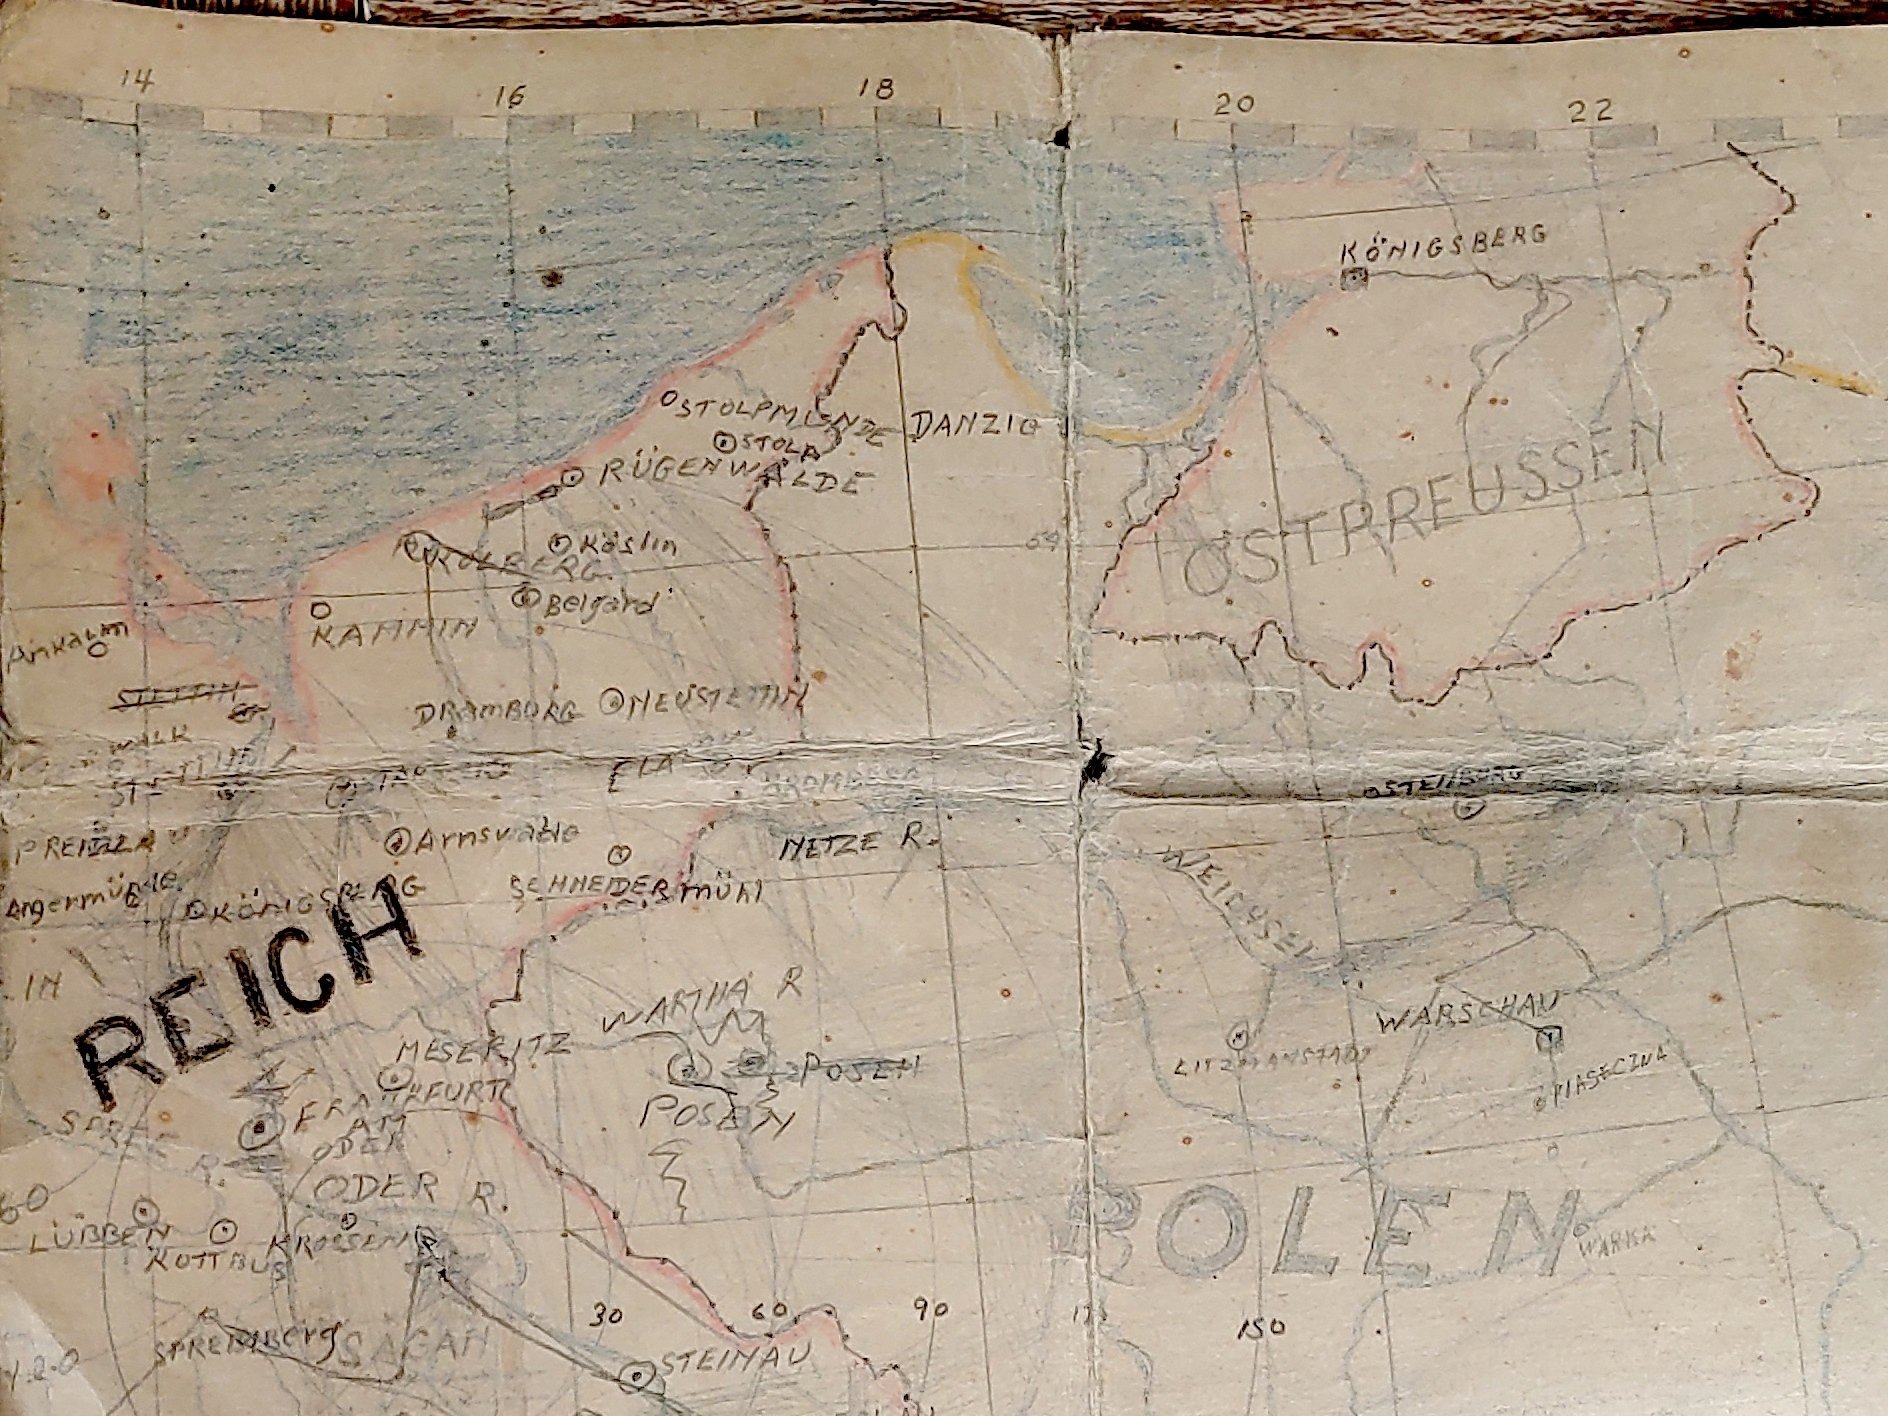 14 16 18 20 22
KÖNIGSBERG
STOLPMÜNDE
DANZIG
STOLP
RÜGENWALDE
OSTPREUSSEN
Köslin
KOLBERG
54
Belgard
KAMMIN
Ankalm
STETTIN
DRAMBURG
NEUSTETTIN
WALK
STETTIN
OSTENBURG
Arnswalde
NETZE R.
PRENZLAU
WEICHSEL
SCHNEIDERMÜHL
Angermünde
KÖNIGSBERG
REICH
IN
WARTHA R
WARSCHAU
MESERITZ
POSEN
LITZMANSTADT
PIASECZNA
FRANKFURT
AM
ODER
POSEN
SPREE
R.
ODER R.
60
POLEN
LÜBBEN
KROSSEN
KOTTBUS
WARKA
30 60 90 150
SPREMBERG
SAGAN
STEINAU